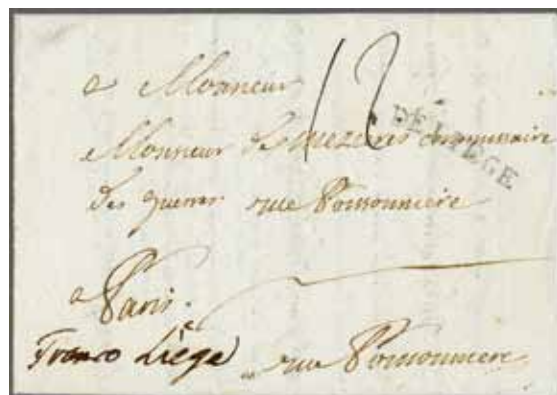 a Monsieur
12
DE LIEGE
Monsieur de mezieres commissaire
des guerres rue Poissonniere
a Paris.
Franco Liège
rue Poissonniere